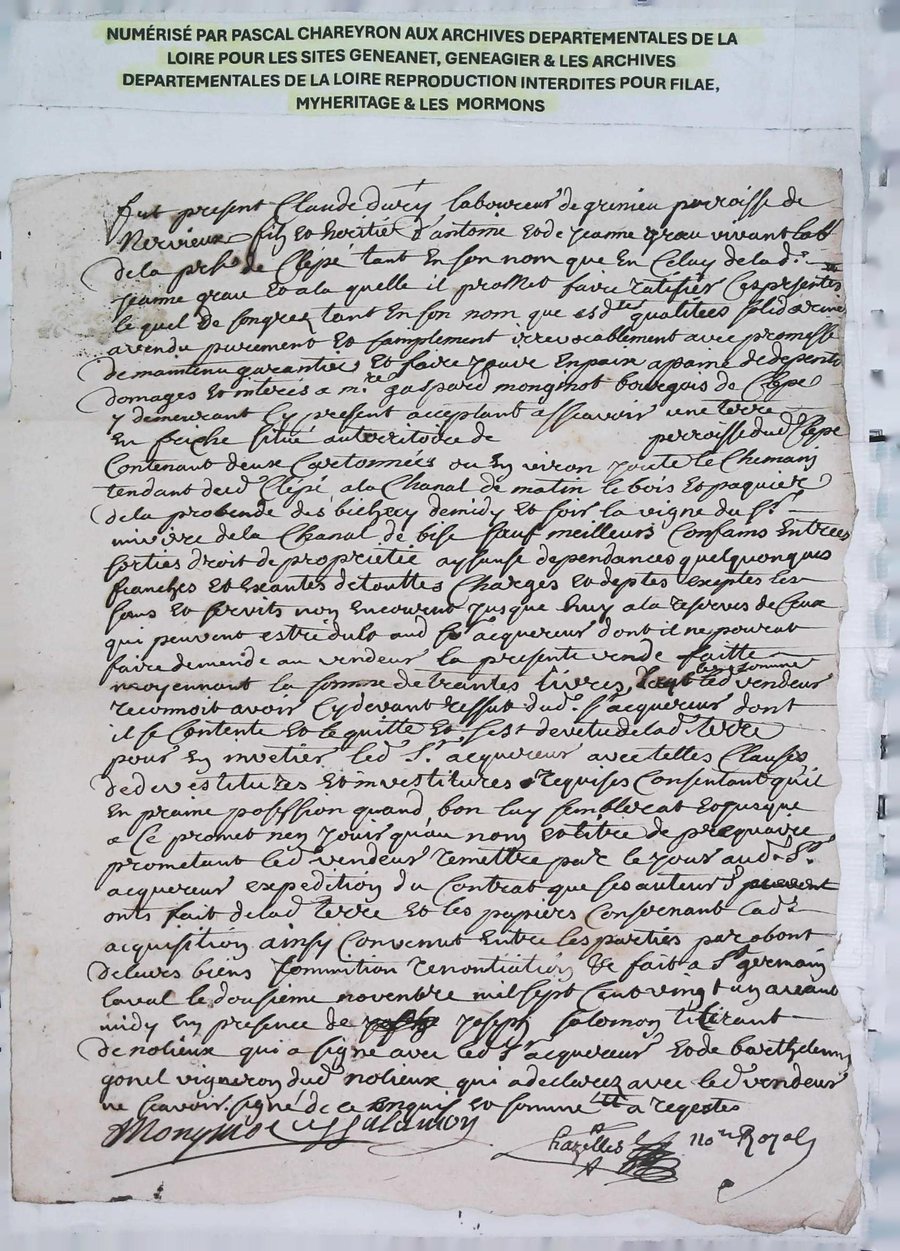 NUMÉRISÉ PAR PASCAL CHAREYRON AUX ARCHIVES DEPARTEMENTALES DE LA
LOIRE POUR LES SITES GENEANET, GENEAGIER & LES ARCHIVES
DEPARTEMENTALES DE LA LOIRE REPRODUCTION INTERDITES POUR FILAE,
MYHERITAGE & LES MORMONS
fut present Claude durey laboureur de grenieu perroisse de
Nervieux filz et heritier d'antoine et de jeanne grau vivant lab^r
de la pr^sse de Clepé tant en son nom que en Celuy de la d^e
jeanne grau et a la quelle il promet faire ratifier Ces presentes
le quel de son gree tant en son nom que esd^tes qualitées solidairem^t
a vendu purement et samplement irrevocablement avec promesse
de maintenu garantie et faire jouir en paix a paine de depents
domages et interés a m^re gaspard monginot bourgois de Clepe
y demeurant Cy present acceptant assavoir une terre
en friche situé au territoire de perroisse dud Clepe
Contenant deux Cartonnées ou en viron joute le Chemain
tendant dud Clépé a la Chanal de matin le bois et paquier
de la probende des bichery de midy et soir la vigne du S^r
de la Chanal de bise sauf meilleurs Confains entrees
sorties droit de proprietée aysance dependances quelquonques
franches et exantes de touttes Charges et deptes exeptes les
sans et servits non encourent jusque huy a la reserves de Ceux
qui peuvent estre dubs aud S^r acquereur dont il ne pourrat
faire demende au vendeur la presente vende faitte
moyennant la somme de trantes livres laquelle somme led vendeur
reconnoit avoir Cy devant ressut dud. S^r acquereur dont
il se Contente et le quitte et sest devetu de lad terre
pour en invetir led. S^r acquereur avec telles Clauses
de devestitures et investitures requises Consentant quil
en praine posession quand bon luy semblerat et jusque
a Ce promet nen jouir quau nom et titre de precquaire
prometant led vendeur remettre par le jour aud. S^r
acquereur expedition du Contrat que ses auteurs
onts fait de lad terre et les papiers Consernant lad^e
acquisition ainsy Convenut entre les parties par obont
de leurs biens soumition renontiation &c fait a S^t germain
laval le dousieme novembre mil sept cent vingt un avant
midy en presence de joseph salomon titerant
de nolieux qui a signé avec led S^r acquereur et de barthelemy
gonel vigneron dud nolieux qui a declarez avec led vendeur
ne scavoir signé de ce enquis et sommé
Monginot Salamon
Chazelles no^re Royal